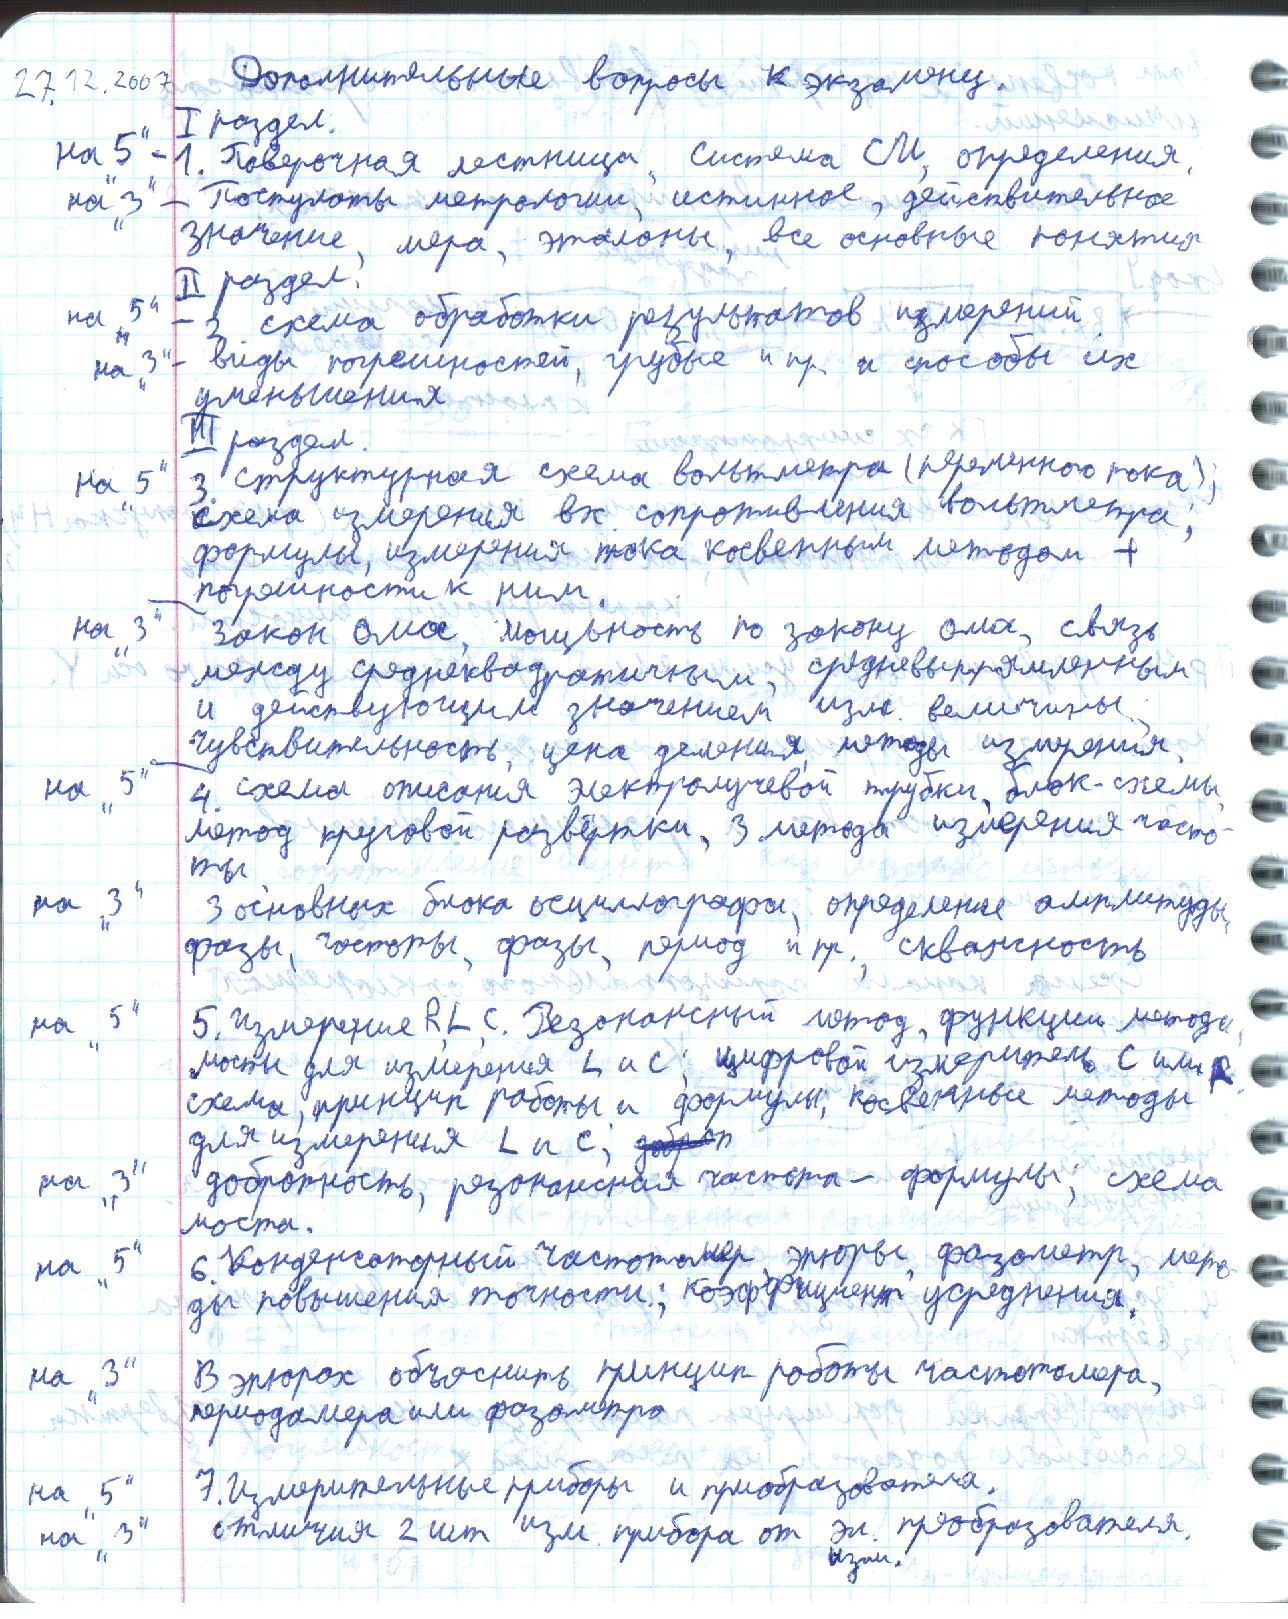 27.12.2007 Дополнительные вопросы к экзамену.
I раздел.
на "5" - 1. Поверочная лестница, система СИ, определения.
на "3" - Постулаты метрологии, истинное, действительное
значение, мера, эталоны, все основные понятия
II раздел.
на "5" - 2 схема обработки результатов измерений
на "3" - виды погрешностей, грубые и пр. и способы их
уменьшения
III раздел.
на "5" 3. Структурная схема вольтметра (переменного тока);
схема измерения вх. сопротивления вольтметра;
формулы, измерения тока косвенным методом +
погрешности к ним.
на "3" Закон Ома, мощьность по закону ома, связь
между среднеквадратичным, средневыпрямленным
и действующим значением изм. величины,
чувствительность, цена деления, методы измерения.
на "5" 4. схема описания электролучевой трубки, блок-схемы,
метод круговой развёртки, 3 метода измерения часто-
ты
на "3" 3 основных блока осциллографа, определение амплитуды,
фазы, частоты, фазы, период и пр., скважность
на "5" 5. Измерение R, L, C. Резонансный метод, функции метода,
мосты для измерения L и C; цифровой измеритель C или R
схема, принцип работы и формулы, косвенные методы
для измерения L и C;
на "3" добротность, резонансная частота - формулы; схема
моста.
на "5" 6. Конденсаторный частотомер, эпюры, фазометр, мето-
ды повышения точности; коэффициент усреднения.
на "3" В эпюрах объяснить принцип работы частотомера,
периодамера или фазометра
на "5" 7. Измерительные приборы и преобразователи.
на "3" отличия 2 шт изм. прибора от эл. преобразователя.
изм.